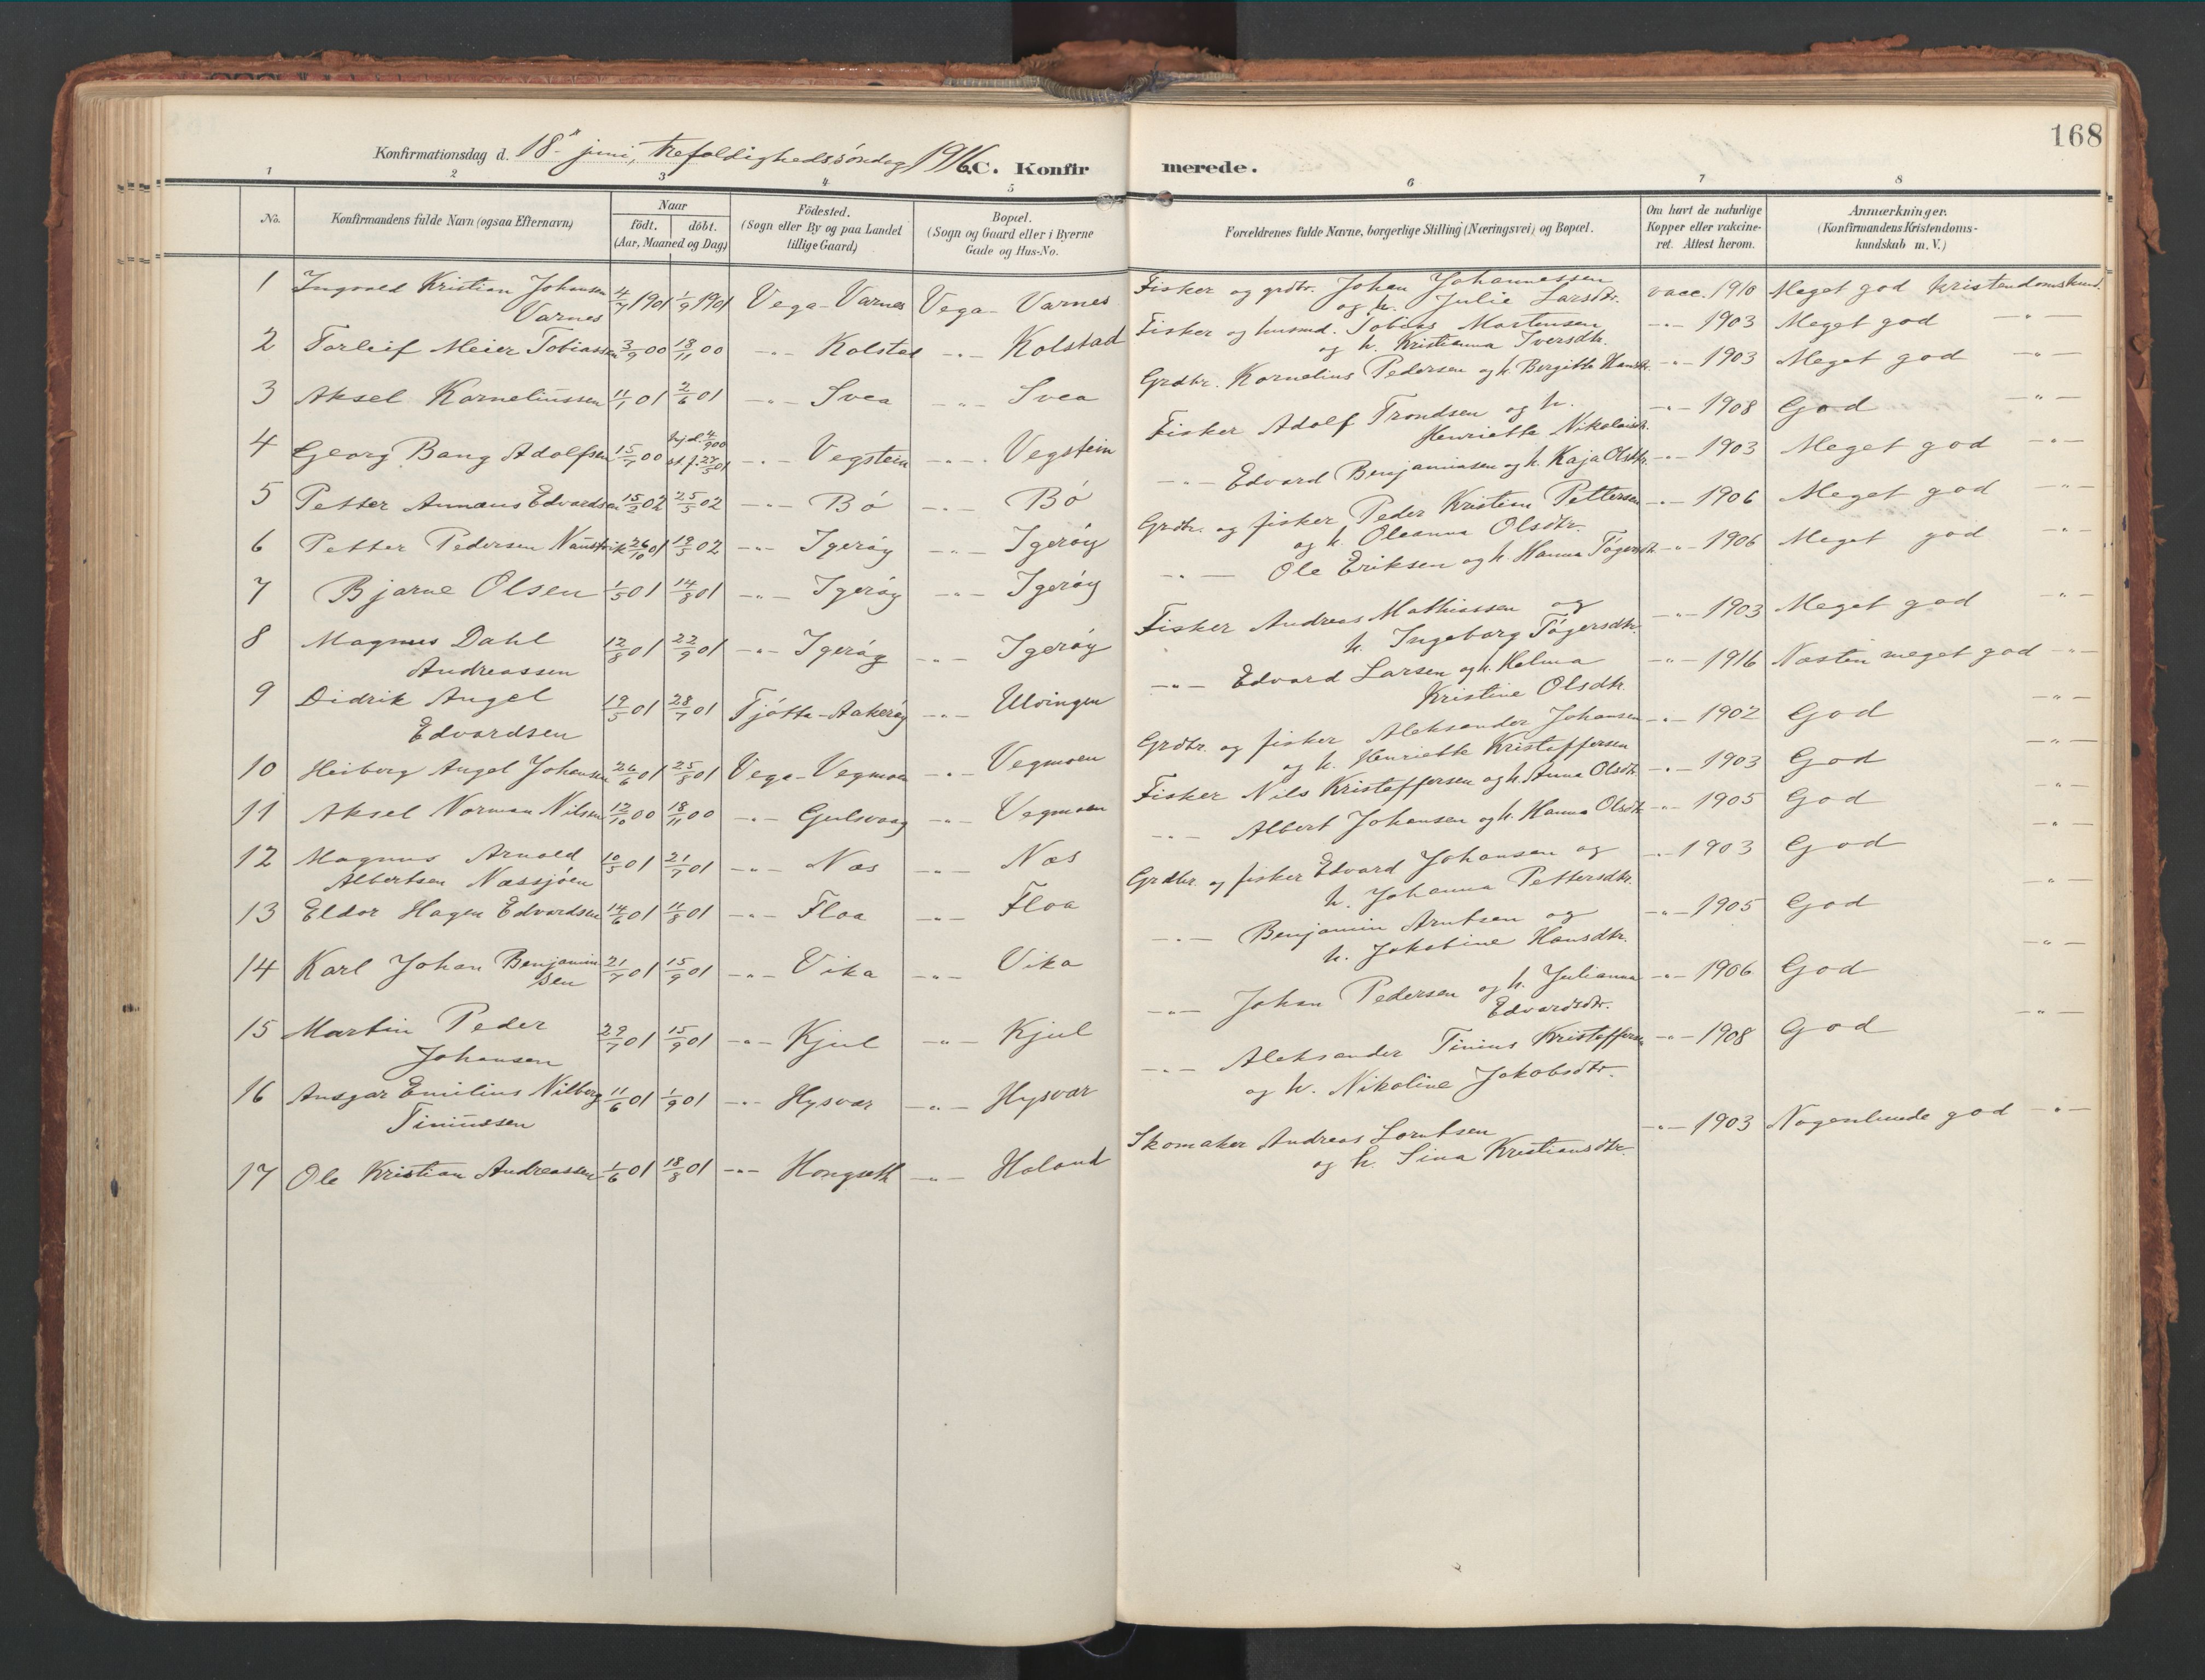 168
Konfirmationsdag d. 18de juni, trefoldighedssöndag 1916. C. Konfirmerede.
1 2 3 4 5 6 7 8
No. Konfirmandens fulde Navn (ogsaa Efternavn) Naar födt. döbt. (Aar, Maaned og Dag) Födested. (Sogn eller By og paa Landet tillige Gaard) Bopæl. (Sogn og Gaard eller i Byerne Gade og Hus-No. Forældrenes fulde Navne, borgerlige Stilling (Næringsvei) og Bopæl. Om havt de naturlige Kopper eller vakcineret. Attest herom. Anmærkninger. (Konfirmandens Kristendomskundskab m. V.)
1 Ingvald Kristian Johansen Varnes 4/7 1901 1/9 1901 Vega-Varnes Vega-Varnes Fisker og grdbr. Johan Johannessen og h. Julie Larsdtr. vacc. 1910 Meget god kristendomskund.
2 Torleif Meier Tobiassen 3/9 00 18/11 00 -"- Kolstad -"- Kolstad Fisker og husmd. Tobias Mortensen og h. Kristianna Iversdtr. -"- 1903 Meget god -"-
3 Aksel Korneliussen 11/1 01 2/6 01 -"- Svea -"- Svea Grdbr. Kornelius Pedersen og h. Bergitte Hansdtr. -"- 1903 Meget god -"-
4 Georg Bang Adolfsen 15/7 00 hjd. 4/9 00 st.f. 27/5 01 -"- Vegstein -"- Vegstein Fisker Adolf Trondsen og h. Henriette Nikolaisdtr. -"- 1908 God -"-
5 Petter Annæus Edvardsen 15/2 02 25/5 02 -"- Bö -"- Bö -"- Edvard Benjaminsen og h. Kaja Olsdtr. -"- 1903 Meget god -"-
6 Petter Pedersen 26/10 01 19/5 02 -"- Igeröy -"- Igeröy Grdbr. og fisker Peder Kristian Pettersen og h. Oleanna Olsdtr. -"- 1906 Meget god -"-
7 Bjarne Olsen 1/5 01 14/8 01 -"- Igeröy -"- Igeröy -"- Ole Eriksen og h. Hanna Tögersdtr. -"- 1906 Meget god -"-
8 Magnus Dahl Andreassen 12/8 01 22/9 01 -"- Igeröy -"- Igeröy Fisker Andreas Mathiassen og h. Ingeborg Tögersdtr. -"- 1903 Meget god -"-
9 Didrik Angel Edvardsen 19/5 01 28/7 01 Tjötta-Aakeröy -"- Ulvingen -"- Edvard Larsen og h. Helma Kristine Olsdtr. -"- 1916 Næsten meget god -"-
10 Heiberg Angel Johansen 26/6 01 25/8 01 Vega-Vegmoen -"- Vegmoen Grdbr. og fisker Aleksander Johansen og h. Henriette Kristoffersen -"- 1902 God -"-
11 Aksel Norman Nilsen 12/10 00 18/11 00 -"- Gulsvaag -"- Vegmoen Fisker Nils Kristoffersen og h. Anna Olsdtr. -"- 1903 God -"-
12 Magnus Arnold Albertsen Næssjöen 10/5 01 21/7 01 -"- Næs -"- Næs -"- Albert Johansen og h. Hanna Olsdtr. -"- 1905 God -"-
13 Eldor Hagen Edvardsen 14/6 01 11/8 01 -"- Floa -"- Floa Grdbr. og fisker Edvard Johansen og h. Johanna Pettersdtr. -"- 1903 God -"-
14 Karl Johan Benjaminsen 21/7 01 15/9 01 -"- Vika -"- Vika -"- Benjamin Arntsen og h. Jakobine Hansdtr. -"- 1905 God -"-
15 Martin Peder Johansen 29/7 01 15/9 01 -"- Kjul -"- Kjul -"- Johan Pedersen og h. Julianna Edvardsdtr. -"- 1906 God -"-
16 Ansgar Emilius Nilberg Tiniussen 11/6 01 1/9 01 -"- Hysvær -"- Hysvær -"- Aleksander Tinius Kristoffersen og h. Nikoline Jakobsdtr. -"- 1908 God -"-
17 Ole Kristian Andreassen 1/6 01 18/8 01 -"- Hongseth -"- Holand Skomaker Andreas Lorntsen og h. Sina Kristiansdtr. -"- 1903 Nogenlunde god -"-